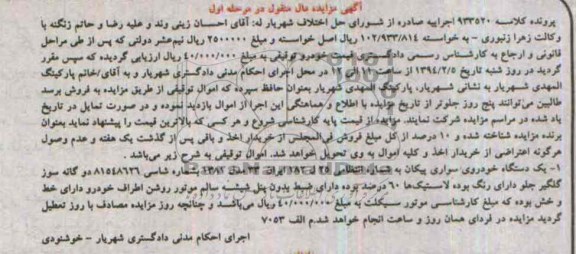 آگهی مزایده مال منقول در مرحله اول
پرونده کلاسه ۹۳۳۵۲۰ اجراییه صادره از شورای حل اختلاف شهریار له: آقای احسان زینی وند و علیه رضا و حاتم زنگنه با
وکالت زهرا زنبوری - به خواسته ۱۰۲/۹۳۳/۸۱۴ ریال اصل خواسته و مبلغ ۲۵۰۰۰۰۰ ریال نیم‌عشر دولتی که پس از طی مراحل
قانونی و ارجاع به کارشناس رسمی دادگستری قیمت خودرو توقیفی به مبلغ ۴۰/۰۰۰/۰۰۰ ریال ارزیابی گردیده که سپس مقرر
گردید در روز شنبه تاریخ ۱۳۹۴/۲/۵ از ساعت در محل اجرای احکام مدنی دادگستری شهریار و به آقای/خانم پارکینگ
المهدی شهریار به نشانی شهریار، پارکینگ المهدی شهریار بعنوان حافظ سپرده که اموال توقیفی از طریق مزایده به فروش برسد
طالبین می‌توانند پنج روز جلوتر از تاریخ مزایده با اطلاع و هماهنگی این اجرا از اموال بازدید نموده و در صورت تمایل در تاریخ
یاد شده در مراسم مزایده شرکت نمایند. مزایده از قیمت پایه کارشناسی شروع و هر کسی که بالاترین قیمت را پیشنهاد نماید بعنوان
برنده مزایده شناخته شده و ۱۰ درصد از کل مبلغ فروش فی‌المجلس از خریدار اخذ و باقی پس از گذشت یک هفته و عدم وصول
هرگونه اعتراضی از خریدار اخذ و کلیه اموال به وی تحویل خواهد شد. اموال توقیفی به شرح زیر می‌باشد .
۱- یک دستگاه خودروی سواری پیکان به شماره انتظامی شماره شاسی ۸۱۵۴۸۶۳۶ دو گانه سوز
گلگیر جلو دارای رنگ بوده لاستیک‌ها ۶۰ درصد بوده دارای ضبط بدون پنل شیشه سالم موتور روشن اطراف خودرو دارای خط
و خش بوده که مبلغ کارشناسی موتور سیکلت به مبلغ ۴۰/۰۰۰/۰۰۰ ریال می‌باشد و چنانچه روز مزایده مصادف با روز تعطیل
گردید مزایده در فردای همان روز و ساعت انجام خواهد شد.م الف ۷۰۵۳
اجرای احکام مدنی دادگستری شهریار - خوشنودی